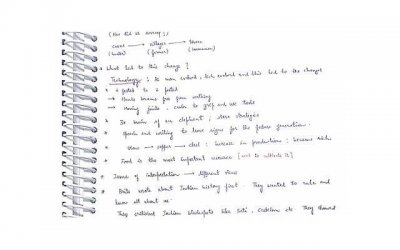 (How did we survive?)
caves → villages → towns
(hunter) (farmer) (consumer)
* What led to this change?
Technology: As man evolved, tech evolved and this led to the changes
* 4 footed to 2 footed
→ Hands became for gun
→ Moving joints, easier to grip and use tools
* 3x brain of an elephant; uses strategies
* Speech and writing to leave signs for the future generation.
* stone → copper → steel: increase in production: became rich
* Food is the most important resource
* Issues of interpretation → different views
* Brits wrote about Indian history first. They wanted to rule and
know all about us.
They criticised Indian like Sati, Casteism etc. They showed